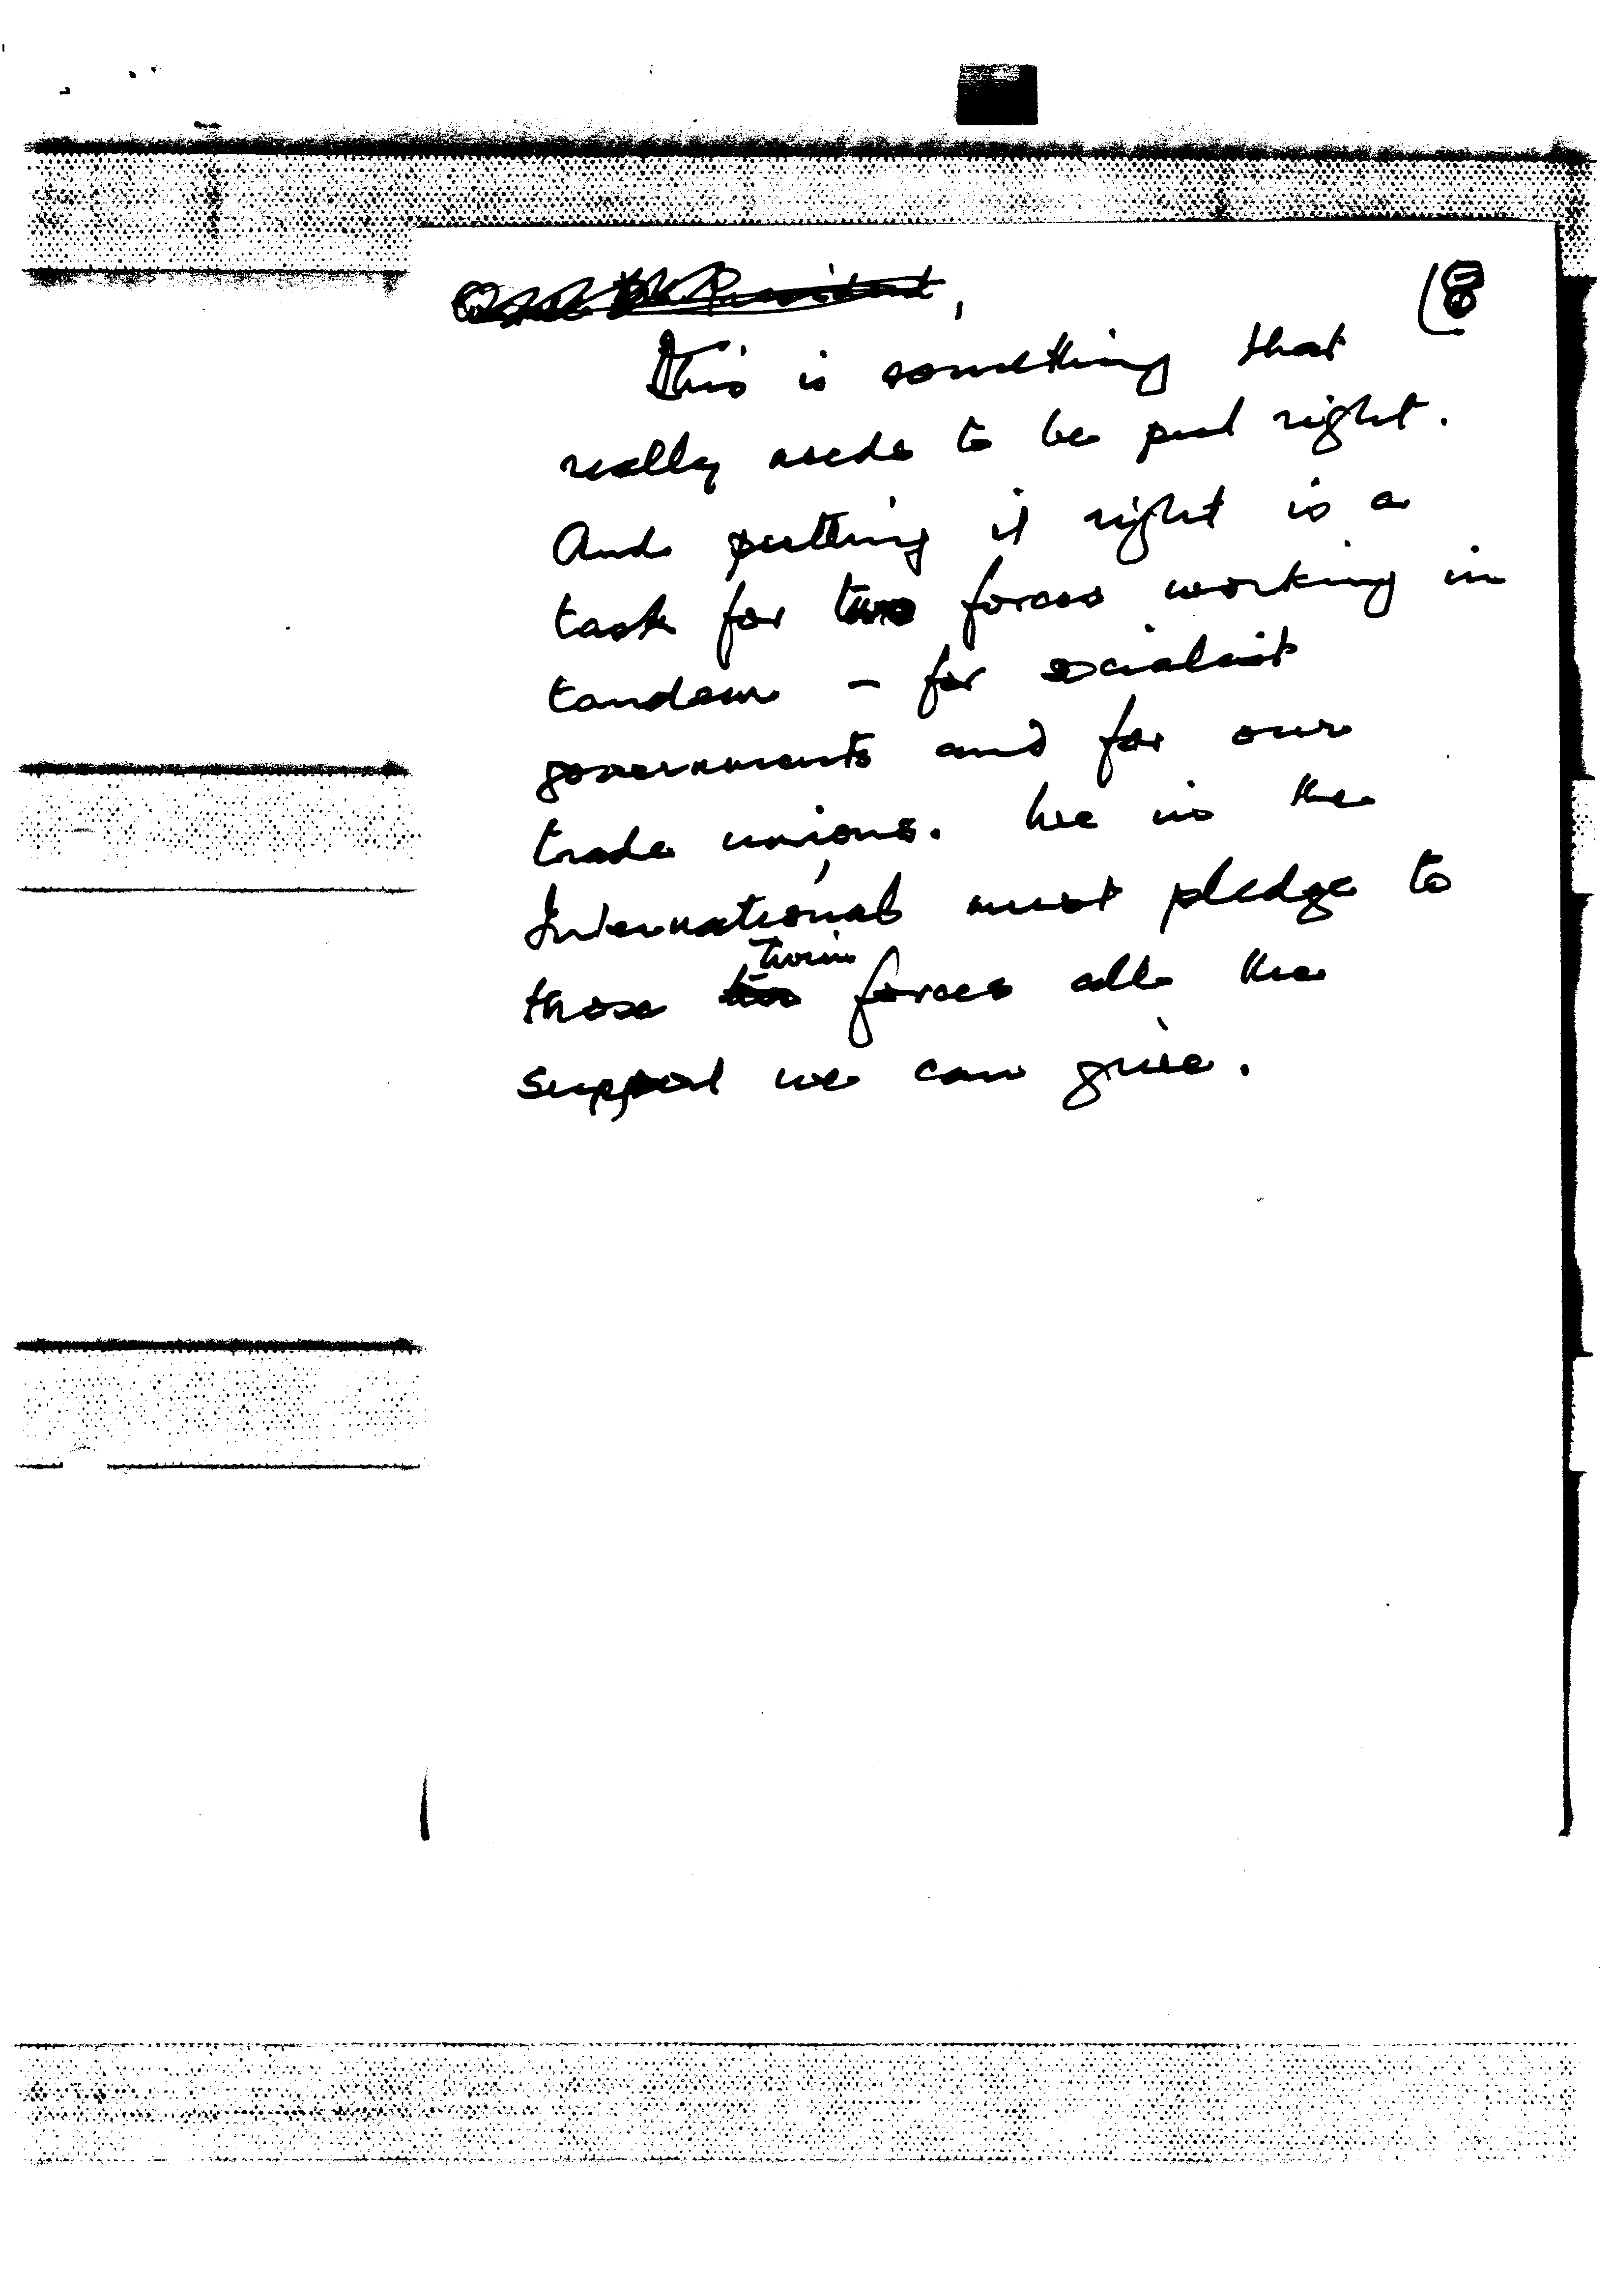 President,
8
This is something that
really needs to be put right.
And putting it right is a
task for two forces working in
tandem - for socialist
governments and for our
trade unions. We in the
International must pledge to
twin
those two forces all the
support we can give.